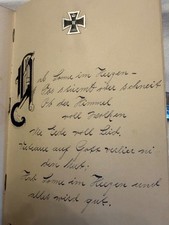 Hab Sonne im Herzen –
Obs stürmt oder schneit
Ob der Himmel
voll Wolken
Die Erde voll
Vertraue auf Gott verlier nie
den Mut.
Hab Sonne im Herzen und
alles wird gut.